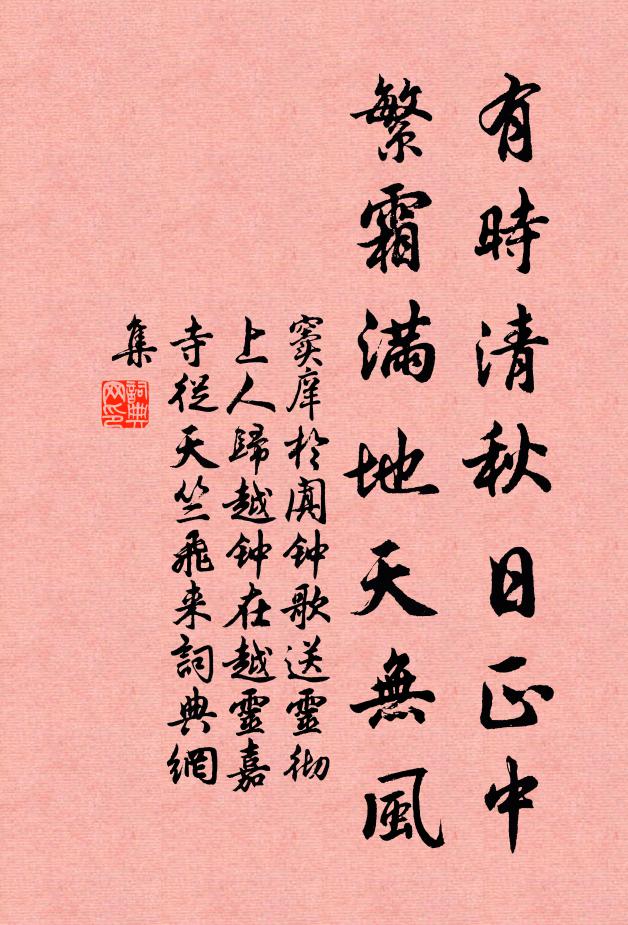 有時清秋日正中
繁霜滿地天無風
竇庠於闐钟歌送靈彻
上人歸越钟在越靈嘉
寺從天竺飛来詞典網
集
詞典
网印